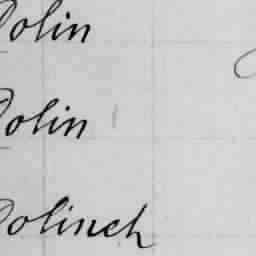 Dolin
Dolin
Dolinch